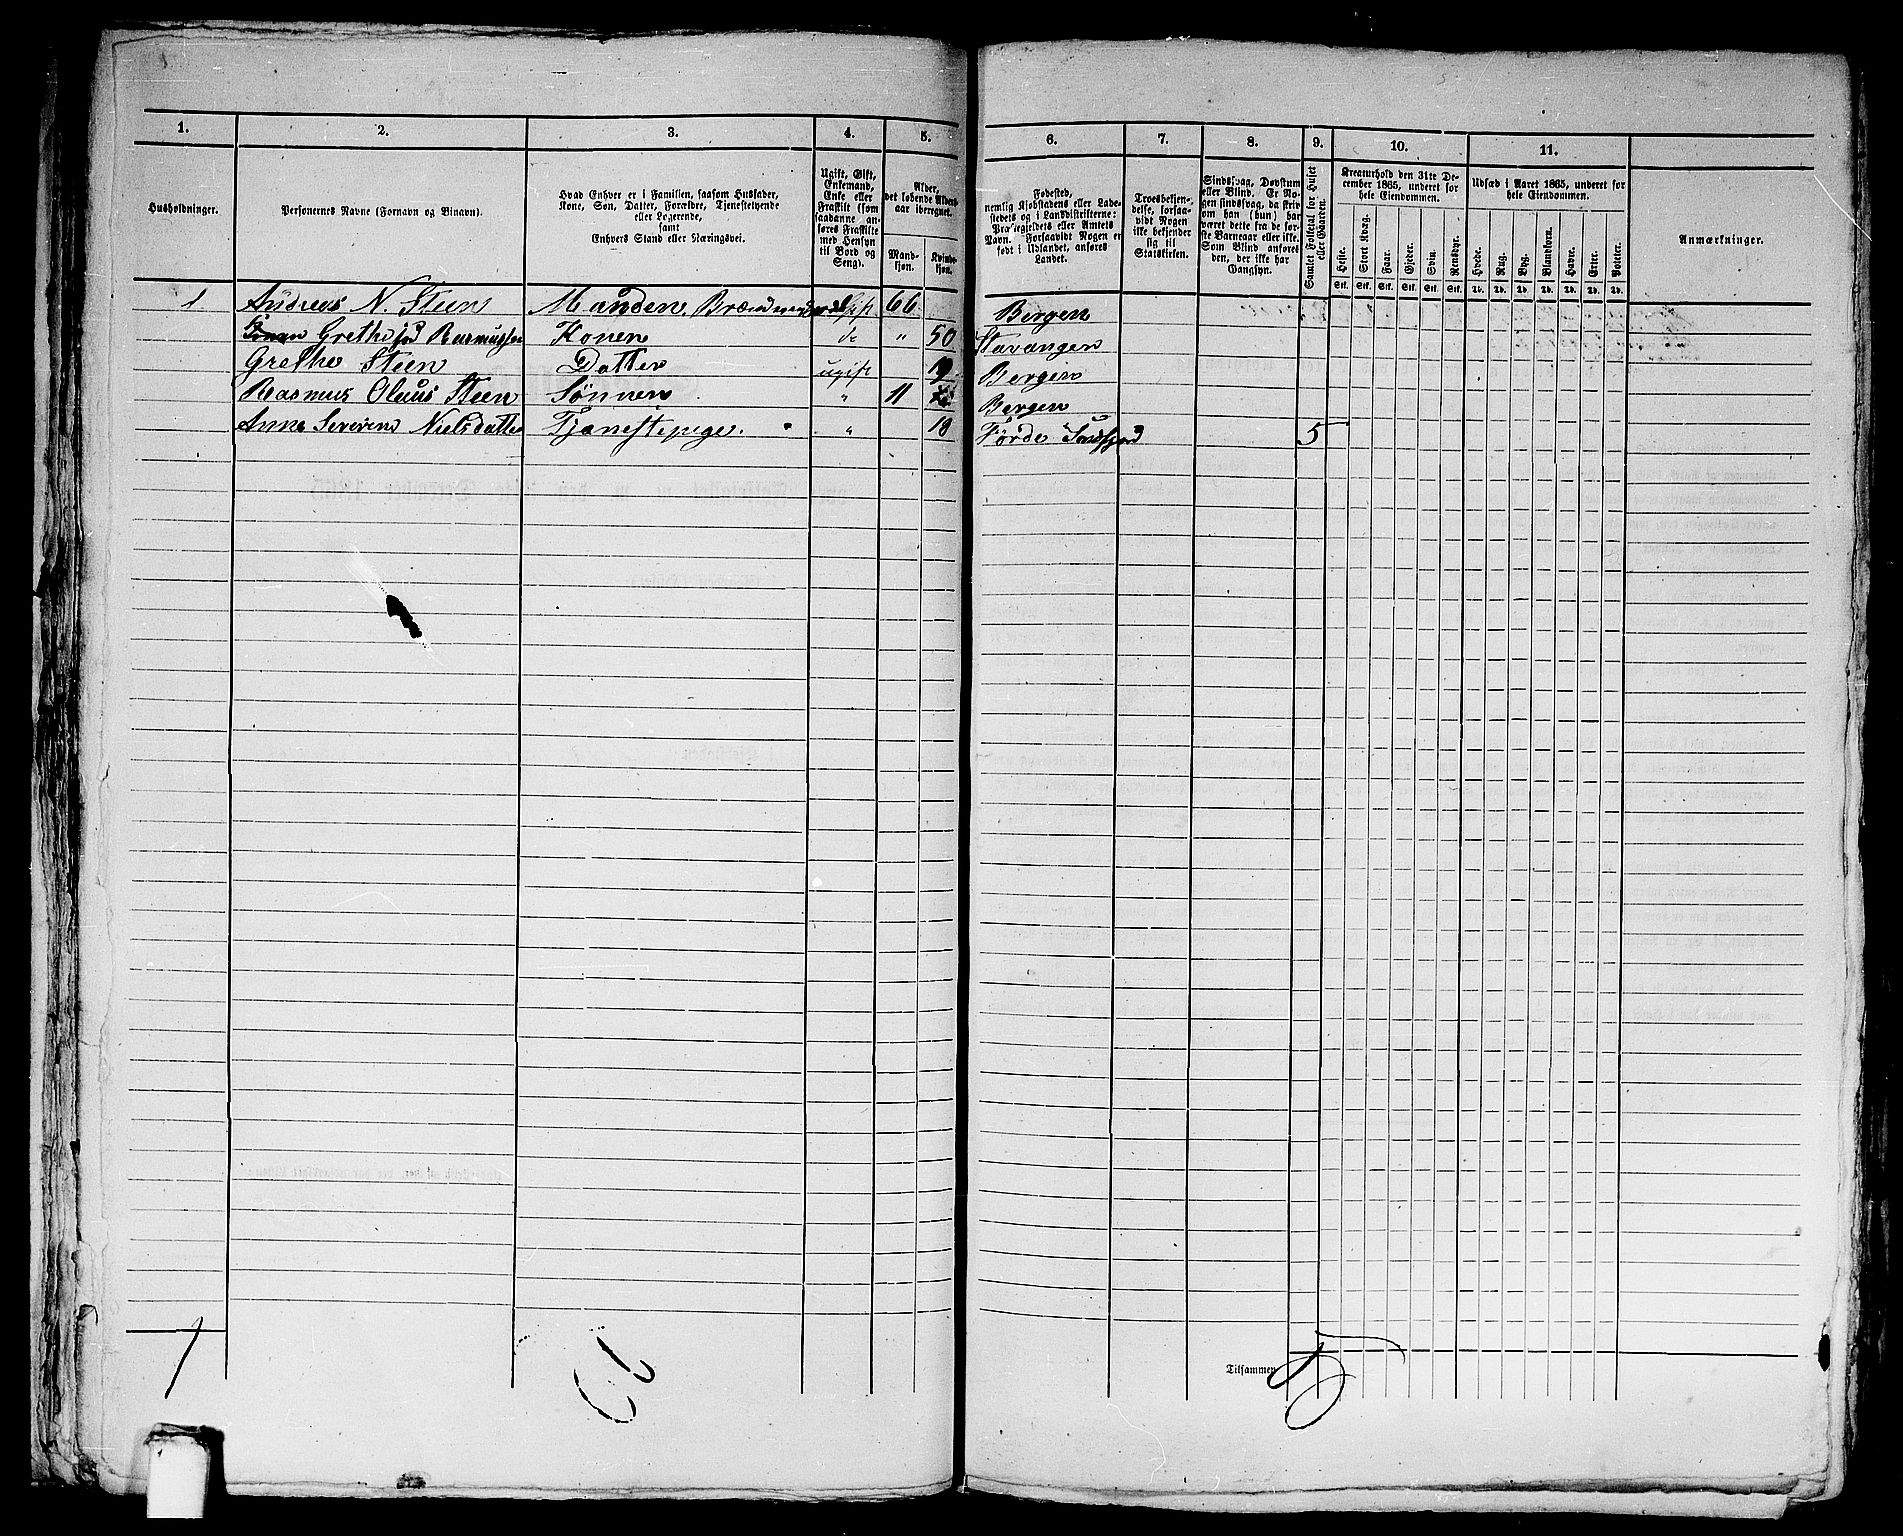 1. 2. 3. 4. 5. 6. 7. 8. 9. 10. 11.
Husholdninger.
Personernes Navne (Fornavn og Binavn).
Hvad Enhver er i Familien, saasom Husfader,
Kone, Søn, Datter, Forældre, Tjenestetyende
eller Logerende,
samt
Enhvers Stand eller Næringsvei.
Ugift, Gift,
Enkemand,
Enke eller
Fraskilt (som
saadanne an-
føres Fraskilte
med Hensyn
til Bord og
Seng).
Alder,
det løbende Alders-
aar iberegnet.
Mand-
kjøn.
Kvinde-
kjøn.
Fødested,
nemlig Kjøbstadens eller Lade-
stedets og i Landdistrikterne:
Præstegjeldets eller Amtets
Navn. Forsaavidt Nogen er
født i Udlandet, anføres
Landet.
Troesbekjen-
delse, forsaa-
vidt Nogen
ikke bekjender
sig til
Statskirken.
Sindssvag, Døvstum
eller Blind. Er No-
gen sindssvag, da skriv
om han (hun) har
været dette fra de før-
ste Barneaar eller ikke.
Som Blind anføres
den, der ikke har
Gangsyn.
Samlet Folketal for Huset
eller Gaarden.
Kreaturhold den 31te De-
cember 1865, underet for
hele Eiendommen.
Heste. Stort Kvæg. Faar. Gjeder. Svin. Rensdyr.
Stk. Stk. Stk. Stk. Stk. Stk.
Udsæd i Aaret 1865, underet for
hele Eiendommen.
Hvede. Rug. Byg. Blandkorn. Havre. Erter. Poteter.
Td. Td. Td. Td. Td. Td. Td.
Anmærkninger.
1 Andreas N. Steen Manden Gift 66 Bergen
Grethe fød Rasmussen Konen do " 50 Stavanger
Grethe Steen Datter ugift 19 Bergen
Rasmus Oluus Steen Sønnen " 11 Bergen
Anne Severine Nielsdatter Tjenestepige " 18 Førde Søndfjord 5
Tilsammen 5
1